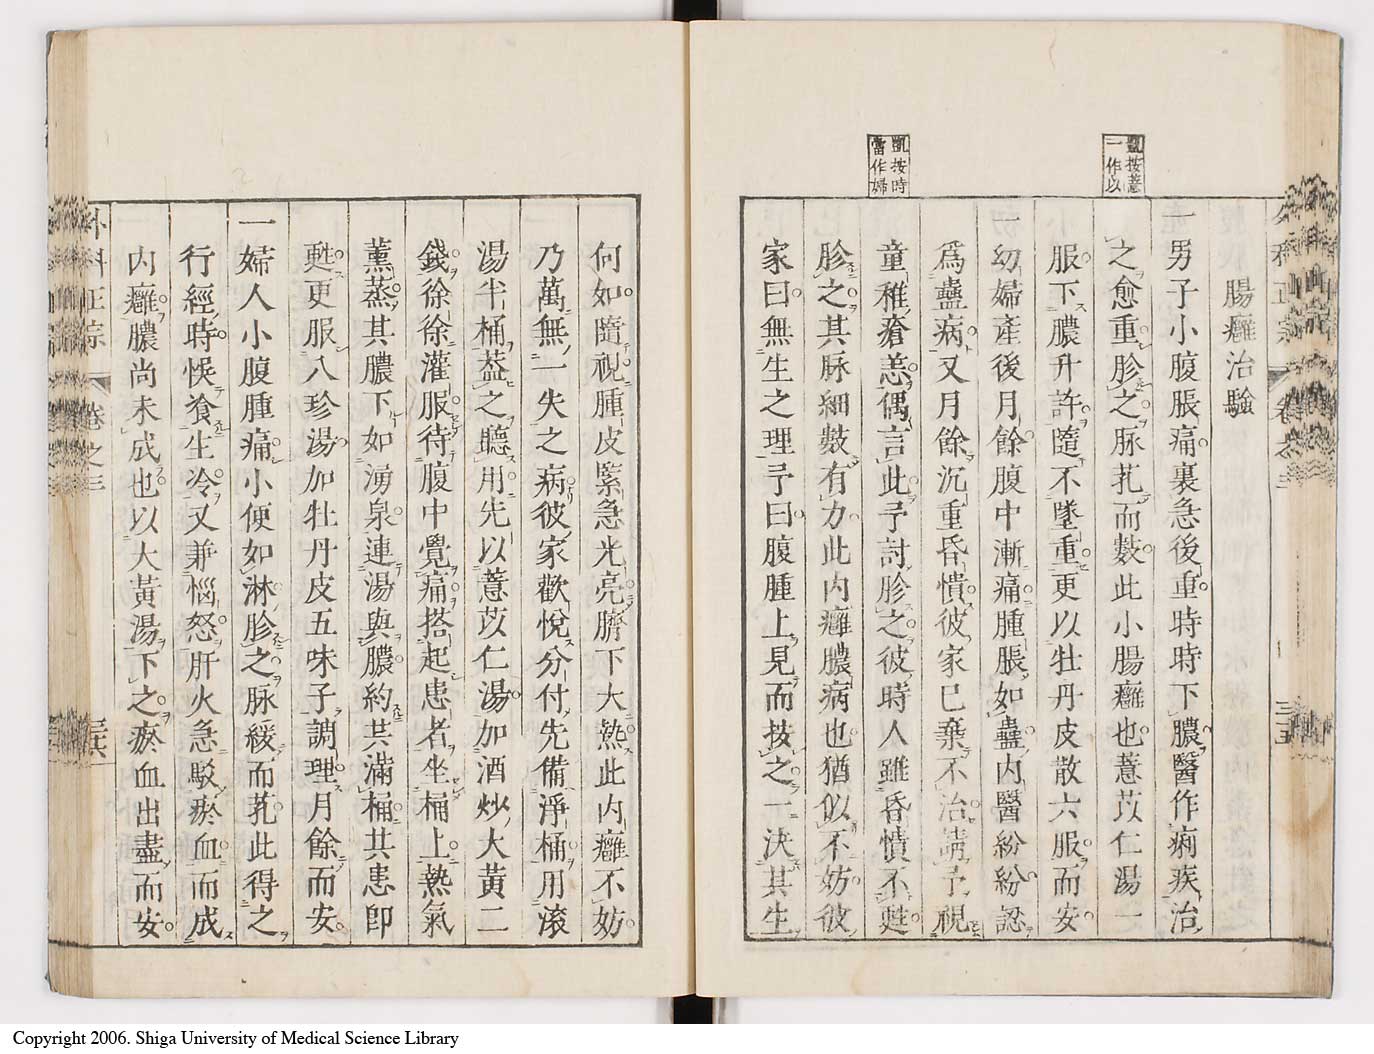 腸癰治驗
一男子小腹脹痛裏急後重時時下膿醫作痢疾治
之愈重胗之脉芤而數此小腸癰也薏苡仁湯一
服下膿升許隨不墜重更以牡丹皮散六服而安
一幼婦產後月餘腹中漸痛腫脹如蠱內醫紛紛認
爲蠱病又月餘沉重昏憒彼家已棄不治請予視
童稚瘡恙偶言此予討胗之彼時人雖昏憒不甦
胗之其脉細數有力此內癰膿病也猶似不妨彼
家曰無生之理予曰腹腫上見而技之一决其生
凱按薏
一作以
凱按時
當作婦
何如隨視腫皮緊急光亮臍下大熱此內癰不妨
乃萬無一失之病彼家歡悅分付先備淨桶用滚
湯半桶葢之聽用先以薏苡仁湯加酒炒大黃二
錢徐徐灌服待腹中覺痛搭起患者坐桶上熱氣
薰蒸其膿下如湧泉連湯與膿約共滿桶其患即
甦更服八珍湯加牡丹皮五味子調理月餘而安
一婦人小腹腫痛小便如淋胗之脉緩而芤此得之
行經時悞飡生冷又兼惱怒肝火急駁瘀血而成
內癰膿尚未成也以大黃湯下之瘀血出盡而安
外科正宗
卷之三
三六
卷之三
三五
Copyright 2006. Shiga University of Medical Science Library